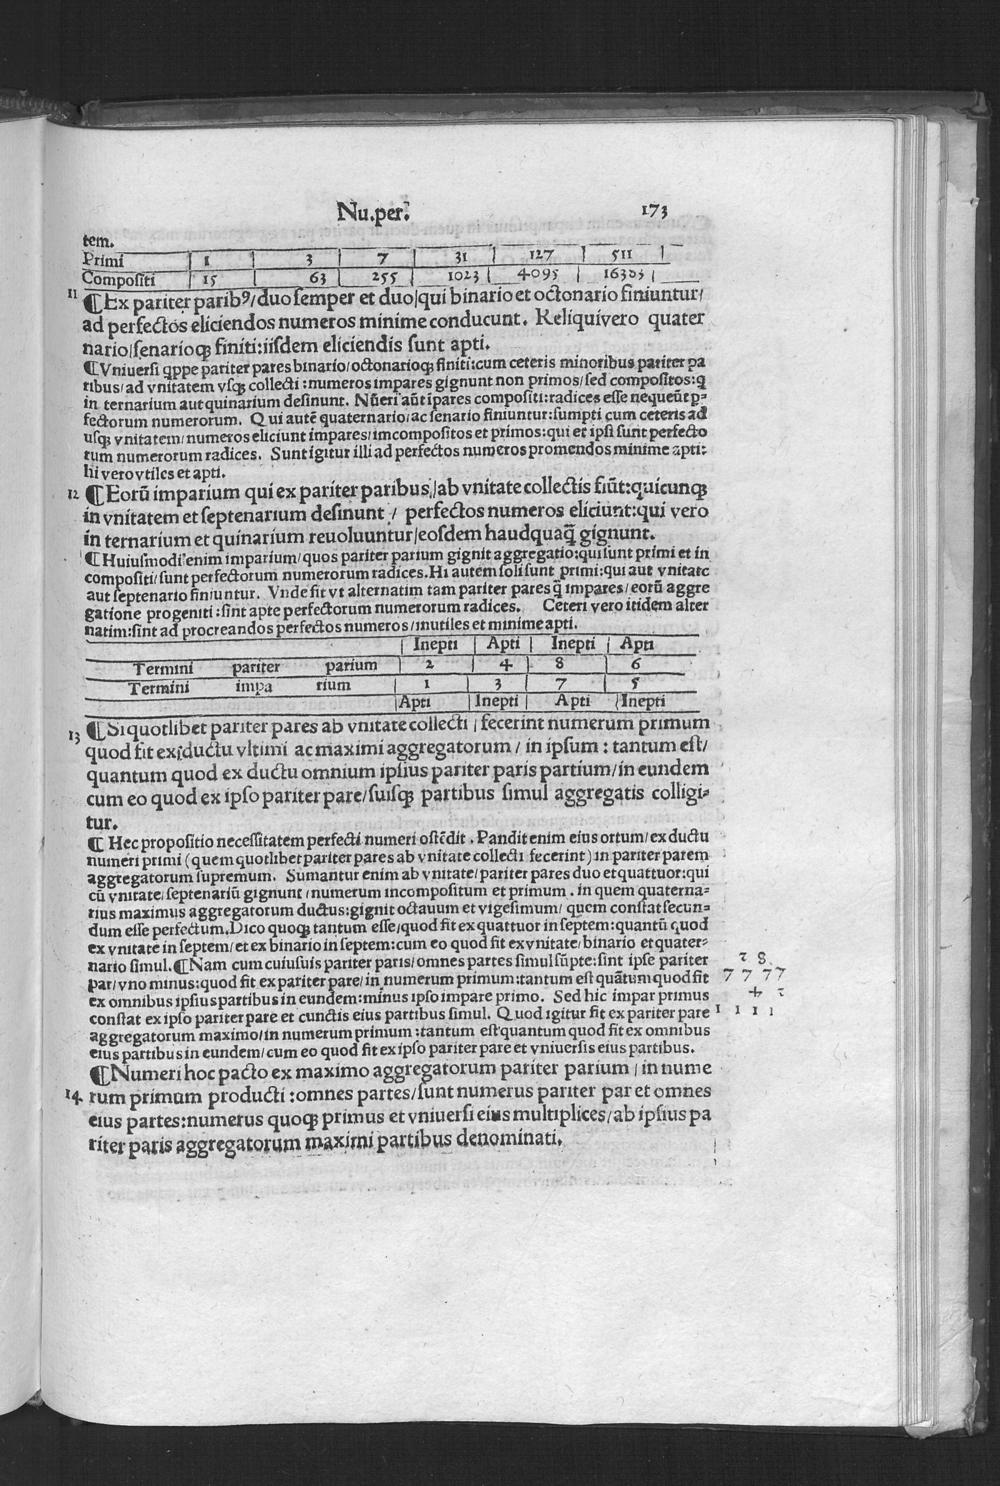 Nu.per. 173
tem.
Primi | 1 | 3 | 7 | 31 | 127 | 511 |
Compositi | 15 | 63 | 255 | 1023 | 4095 | 16383 |
11 ¶Ex pariter paribꝰ/duo semper et duo/qui binario et octonario finiuntur/
ad perfectos eliciendos numeros minime conducunt. Reliqui vero quater
nario/senarioqꝫ finiti:iisdem eliciendis sunt apti.
¶Vniuersi qppe pariter pares binario/octonarioqꝫ finiti:cum ceteris minoribus pariter pa
ribus/ad vnitatem vsqꝫ collecti:numeros impares gignunt non primos/sed compositos:q
in ternarium aut quinarium desinunt. Nūeri aūt īpares compositi:radices esse nequeūt ꝑ⸗
fectorum numerorum. Qui autē quaternario/ac senario finiuntur:sumpti cum ceteris ad
usqꝫ vnitatem/numeros eliciunt impares/imcompositos et primos:qui et ipsi sunt perfecto
rum numerorum radices. Sunt igitur illi ad perfectos numeros promendos minime apti:
hi vero vtiles et apti.
12 ¶Eorū imparium qui ex pariter paribus/ab vnitate collectis fiūt:quicunqꝫ
in vnitatem et septenarium desinunt/ perfectos numeros eliciunt:qui vero
in ternarium et quinarium reuoluuntur/eosdem haudquaq̄ gignunt.
¶Huiusmodi enim imparium/quos pariter parium gignit aggregatio:qui sunt primi et in
compositi/sunt perfectorum numerorum radices. Hi autem soli sunt primi:qui aut vnitate
aut septenario finiuntur. Vnde fit vt alternatim tam pariter pares q̄ impares/eorū aggre
gatione progeniti:sint apte perfectorum numerorum radices. Ceteri vero itidem alter
natim:sint ad procreandos perfectos numeros/inutiles et minime apti.
| Inepti | Apti | Inepti | Apti
Termini pariter parium | 2 | 4 | 8 | 6
Termini impa rium | 1 | 3 | 7 | 5
|Apti |Inepti | Apti |Inepti
13 ¶Si quotlibet pariter pares ab vnitate collecti/fecerint numerum primum
quod fit ex ductu vltimi ac maximi aggregatorum/in ipsum:tantum est/
quantum quod ex ductu omnium ipsius pariter paris partium/in eundem
cum eo quod ex ipso pariter pare/suisqꝫ partibus simul aggregatis colligi⸗
tur.
¶Hec propositio necessitatem perfecti numeri ostēdit. Pandit enim eius ortum/ex ductu
numeri primi (quem quotlibet pariter pares ab vnitate collecti fecerint) in pariter parem
aggregatorum supremum. Sumantur enim ab vnitate/pariter pares duo et quattuor:qui
cū vnitate/septenariū gignunt/numerum incompositum et primum. in quem quaterna⸗
rius maximus aggregatorum ductus:gignit octauum et vigesimum/quem constat secun⸗
dum esse perfectum. Dico quoqꝫ tantum esse/quod fit ex quattuor in septem:quantū quod
ex vnitate in septem/et ex binario in septem:cum eo quod fit ex vnitate/binario et quater⸗
nario simul. ¶Nam cum cuiusuis pariter paris/omnes partes simul sūpte:sint ipse pariter
par/vno minus:quod fit ex pariter pare/in numerum primum:tantum est quātum quod fit
ex omnibus ipsius partibus in eundem:minus ipso impare primo. Sed hic impar primus
constat ex ipso pariter pare et cunctis eius partibus simul. Quod igitur fit ex pariter pare
aggregatorum maximo/in numerum primum:tantum est quantum quod fit ex omnibus
eius partibus in eundem/cum eo quod fit ex ipso pariter pare et vniuersis eius partibus.
2 8
7 7 7 7
4 2
1 1 1 1
¶Numeri hoc pacto ex maximo aggregatorum pariter parium/in nume
14. rum primum producti:omnes partes/sunt numerus pariter par et omnes
eius partes:numerus quoqꝫ primus et vniuersi eius multiplices/ab ipsius pa
riter paris aggregatorum maximi partibus denominati.